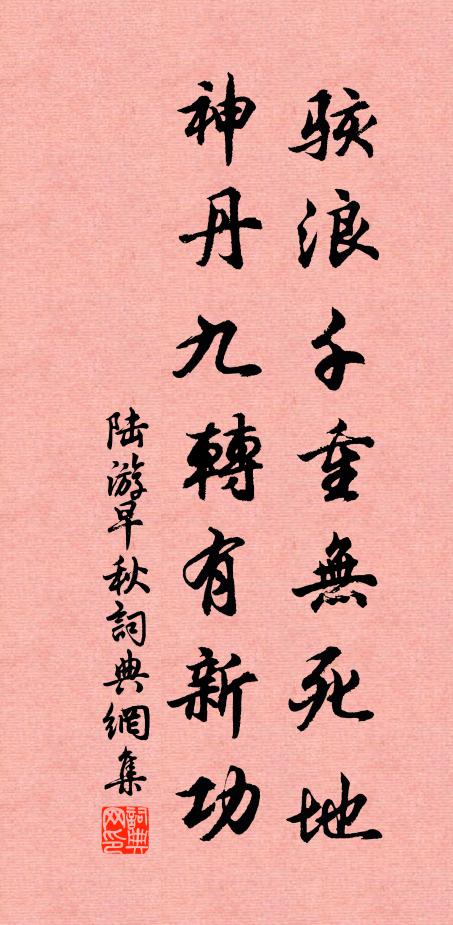 骇浪千重無死地
神丹九轉有新功
陆游早秋詞典網集
詞典网印